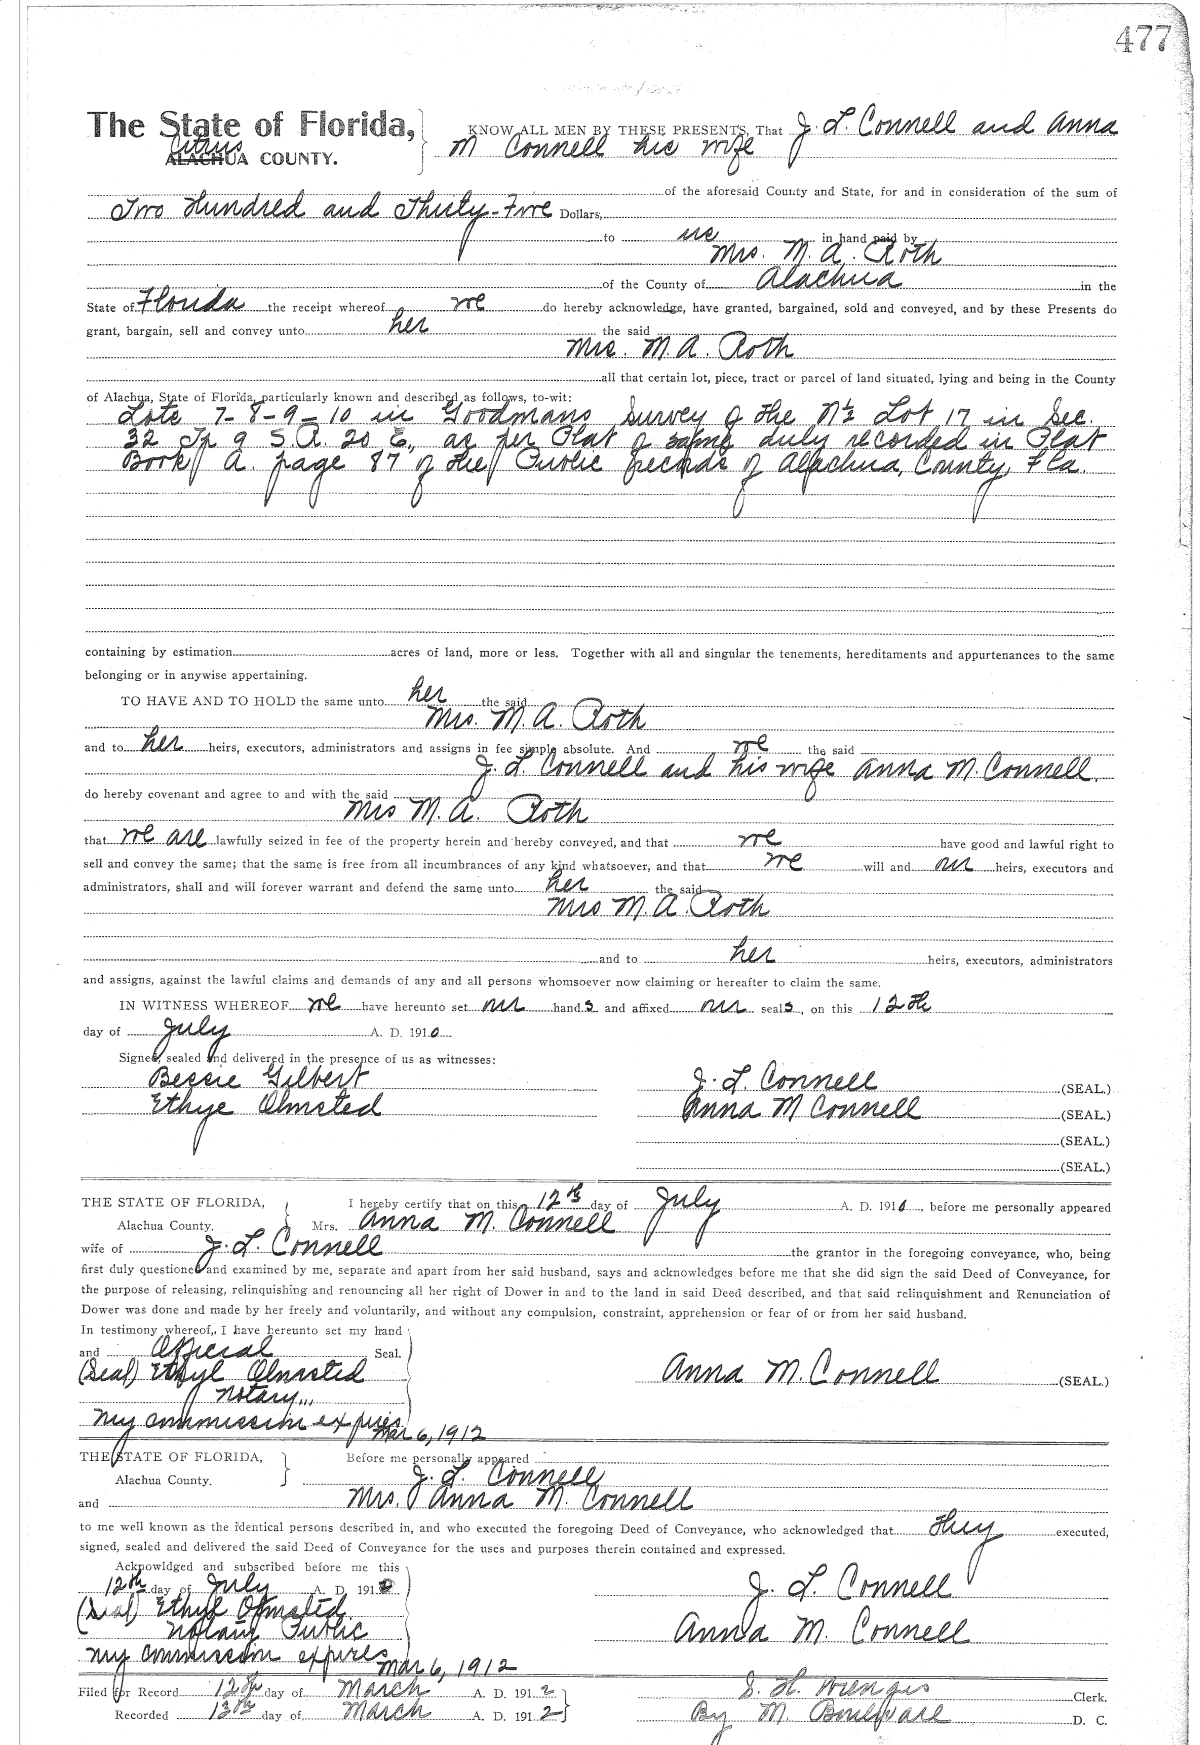 477
The State of Florida, KNOW ALL MEN BY THESE PRESENTS, That J. L. Connell and Anna
Citrus
ALACHUA COUNTY. M Connell his wife
of the aforesaid County and State, for and in consideration of the sum of
Two Hundred and Thirty-Five Dollars,
to us in hand paid by
Mrs. M. A. Roth
of the County of Alachua in the
State of Florida the receipt whereof we do hereby acknowledge, have granted, bargained, sold and conveyed, and by these Presents do
grant, bargain, sell and convey unto her the said
Mrs. M. A. Roth
all that certain lot, piece, tract or parcel of land situated, lying and being in the County
of Alachua, State of Florida, particularly known and described as follows, to-wit:
Lots 7-8-9-10 in Goodmans Survey of the N½ Lot 17 in Sec.
32 Tp 9 S. R. 20 E., as per Plat of same duly recorded in Plat
Book A. page 87 of the Public Records of Alachua, County, Fla.
containing by estimation acres of land, more or less. Together with all and singular the tenements, hereditaments and appurtenances to the same
belonging or in anywise appertaining.
TO HAVE AND TO HOLD the same unto her the said
Mrs. M. A. Roth
and to her heirs, executors, administrators and assigns in fee simple absolute. And we the said
J. L. Connell and his wife Anna M. Connell.
do hereby covenant and agree to and with the said
Mrs M. A. Roth
that we are lawfully seized in fee of the property herein and hereby conveyed, and that we have good and lawful right to
sell and convey the same; that the same is free from all incumbrances of any kind whatsoever, and that we will and our heirs, executors and
administrators, shall and will forever warrant and defend the same unto her the said
Mrs M. A. Roth
and to her heirs, executors, administrators
and assigns, against the lawful claims and demands of any and all persons whomsoever now claiming or hereafter to claim the same.
IN WITNESS WHEREOF we have hereunto set our hands and affixed our seals, on this 12th
day of July A. D. 1910
Signed, sealed and delivered in the presence of us as witnesses:
Bessie Gilbert J. L. Connell (SEAL.)
Ethye Olmsted Anna M Connell (SEAL.)
(SEAL.)
(SEAL.)
THE STATE OF FLORIDA, I hereby certify that on this 12th day of July A. D. 1910, before me personally appeared
Alachua County. Mrs. Anna M. Connell
wife of J. L. Connell the grantor in the foregoing conveyance, who, being
first duly questioned and examined by me, separate and apart from her said husband, says and acknowledges before me that she did sign the said Deed of Conveyance, for
the purpose of releasing, relinquishing and renouncing all her right of Dower in and to the land in said Deed described, and that said relinquishment and Renunciation of
Dower was done and made by her freely and voluntarily, and without any compulsion, constraint, apprehension or fear of or from her said husband.
In testimony whereof, I have hereunto set my hand
and Official Seal.
(Seal) Ethyl Olmsted Anna M. Connell (SEAL.)
Notary...
My commission expires
Mar 6, 1912
THE STATE OF FLORIDA, Before me personally appeared
Alachua County. J. L. Connell
and Mrs. Anna M. Connell
to me well known as the identical persons described in, and who executed the foregoing Deed of Conveyance, who acknowledged that they executed,
signed, sealed and delivered the said Deed of Conveyance for the uses and purposes therein contained and expressed.
Acknowldged and subscribed before me this
12th day of July A. D. 1910 J. L. Connell
(Seal) Ethyl Olmsted.
Notary Public Anna M. Connell
My commission expires
Mar 6, 1912
Filed for Record 12th day of March A. D. 1912 S. H. Wienges Clerk.
Recorded 13th day of March A. D. 1912 By M. Boulware D. C.